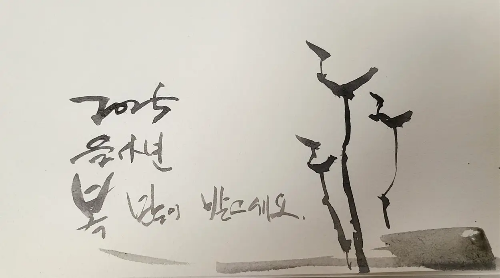 2025
을사년
복 많이 받으세요.